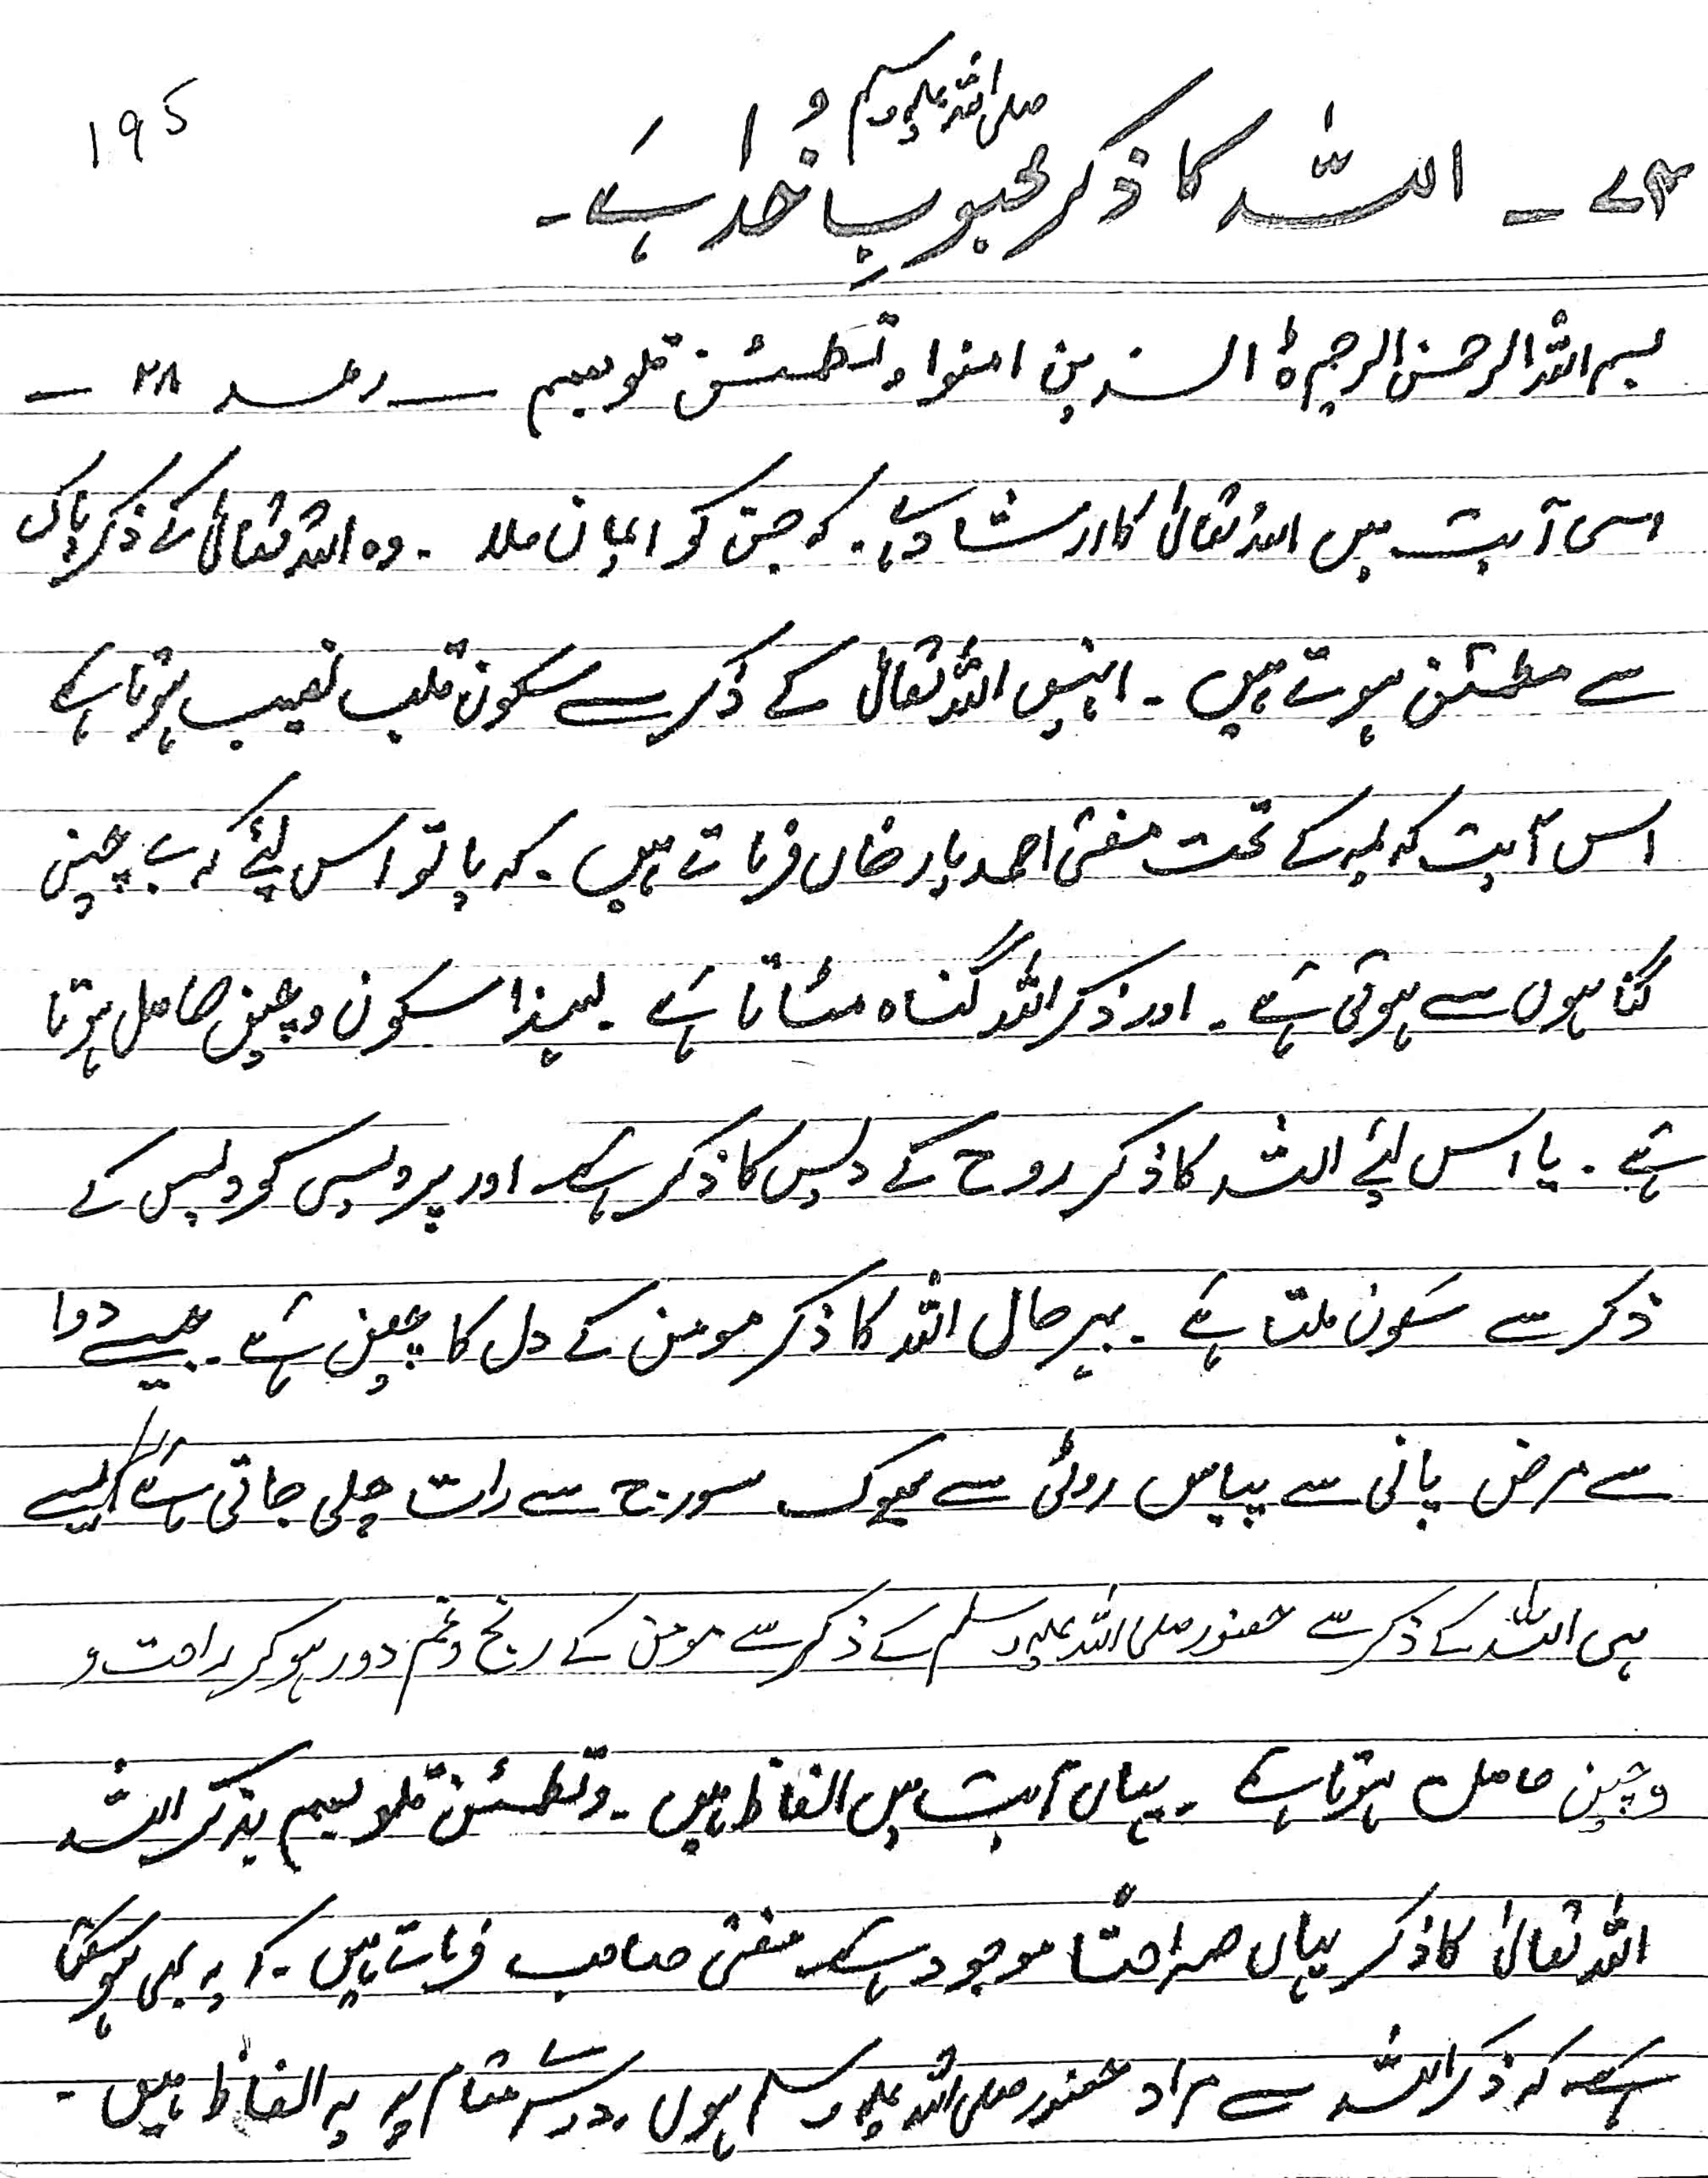 195
صلی اللہ علیہ وسلم
۷۴ - اللہ کا ذکر محبوبِ خُدا ہے۔
بسم اللہ الرحمن الرحیم ہ الذین امنوا و تطمئن قلوبھم — رعد ۲۸ —
اسی آیت میں اللہ تعالیٰ کا ارشاد ہے۔ کہ جن کو ایمان ملا۔ وہ اللہ تعالیٰ کے ذکر پاک
سے مطمئن ہوتے ہیں۔ انہیں اللہ تعالیٰ کے ذکر سے سکون قلب نصیب ہوتا ہے
اس آیت کریمہ کے تحت مفتی احمد یار خاں فرماتے ہیں۔ کہ یا تو اس لئے کہ بے چینی
گناہوں سے ہوتی ہے۔ اور ذکر اللہ گناہ مٹاتا ہے۔ لہذا سکون و چین حاصل ہوتا
ہے۔ یا اس لئے اللہ کا ذکر روح کے دیس کا ذکر ہے۔ اور پردیسی کو دیس کے
ذکر سے سکون ملتا ہے۔ بہرحال اللہ کا ذکر مومن کے دل کا چین ہے۔ جیسے دوا
سے مرض پانی سے پیاس روٹی سے بھوک سورج سے رات چلی جاتی ہے ایسے
ہی اللہ کے ذکر سے حضور صلی اللہ علیہ وسلم کے ذکر سے مومن کے رنج و غم دور ہو کر راحت و
و چین حاصل ہوتا ہے۔ یہاں آیت میں الفاظ ہیں۔ و تطمئن قلوبھم بذکر اللہ
اللہ تعالیٰ کا ذکر یہاں صراحتاً موجود ہے۔ مفتی صاحب فرماتے ہیں۔ کہ یہ بھی ہو سکتا
ہے کہ ذکر اللہ سے مراد حضور صلی اللہ علیہ وسلم ہوں۔ دوسرے مقام پر یہ الفاظ ہیں۔